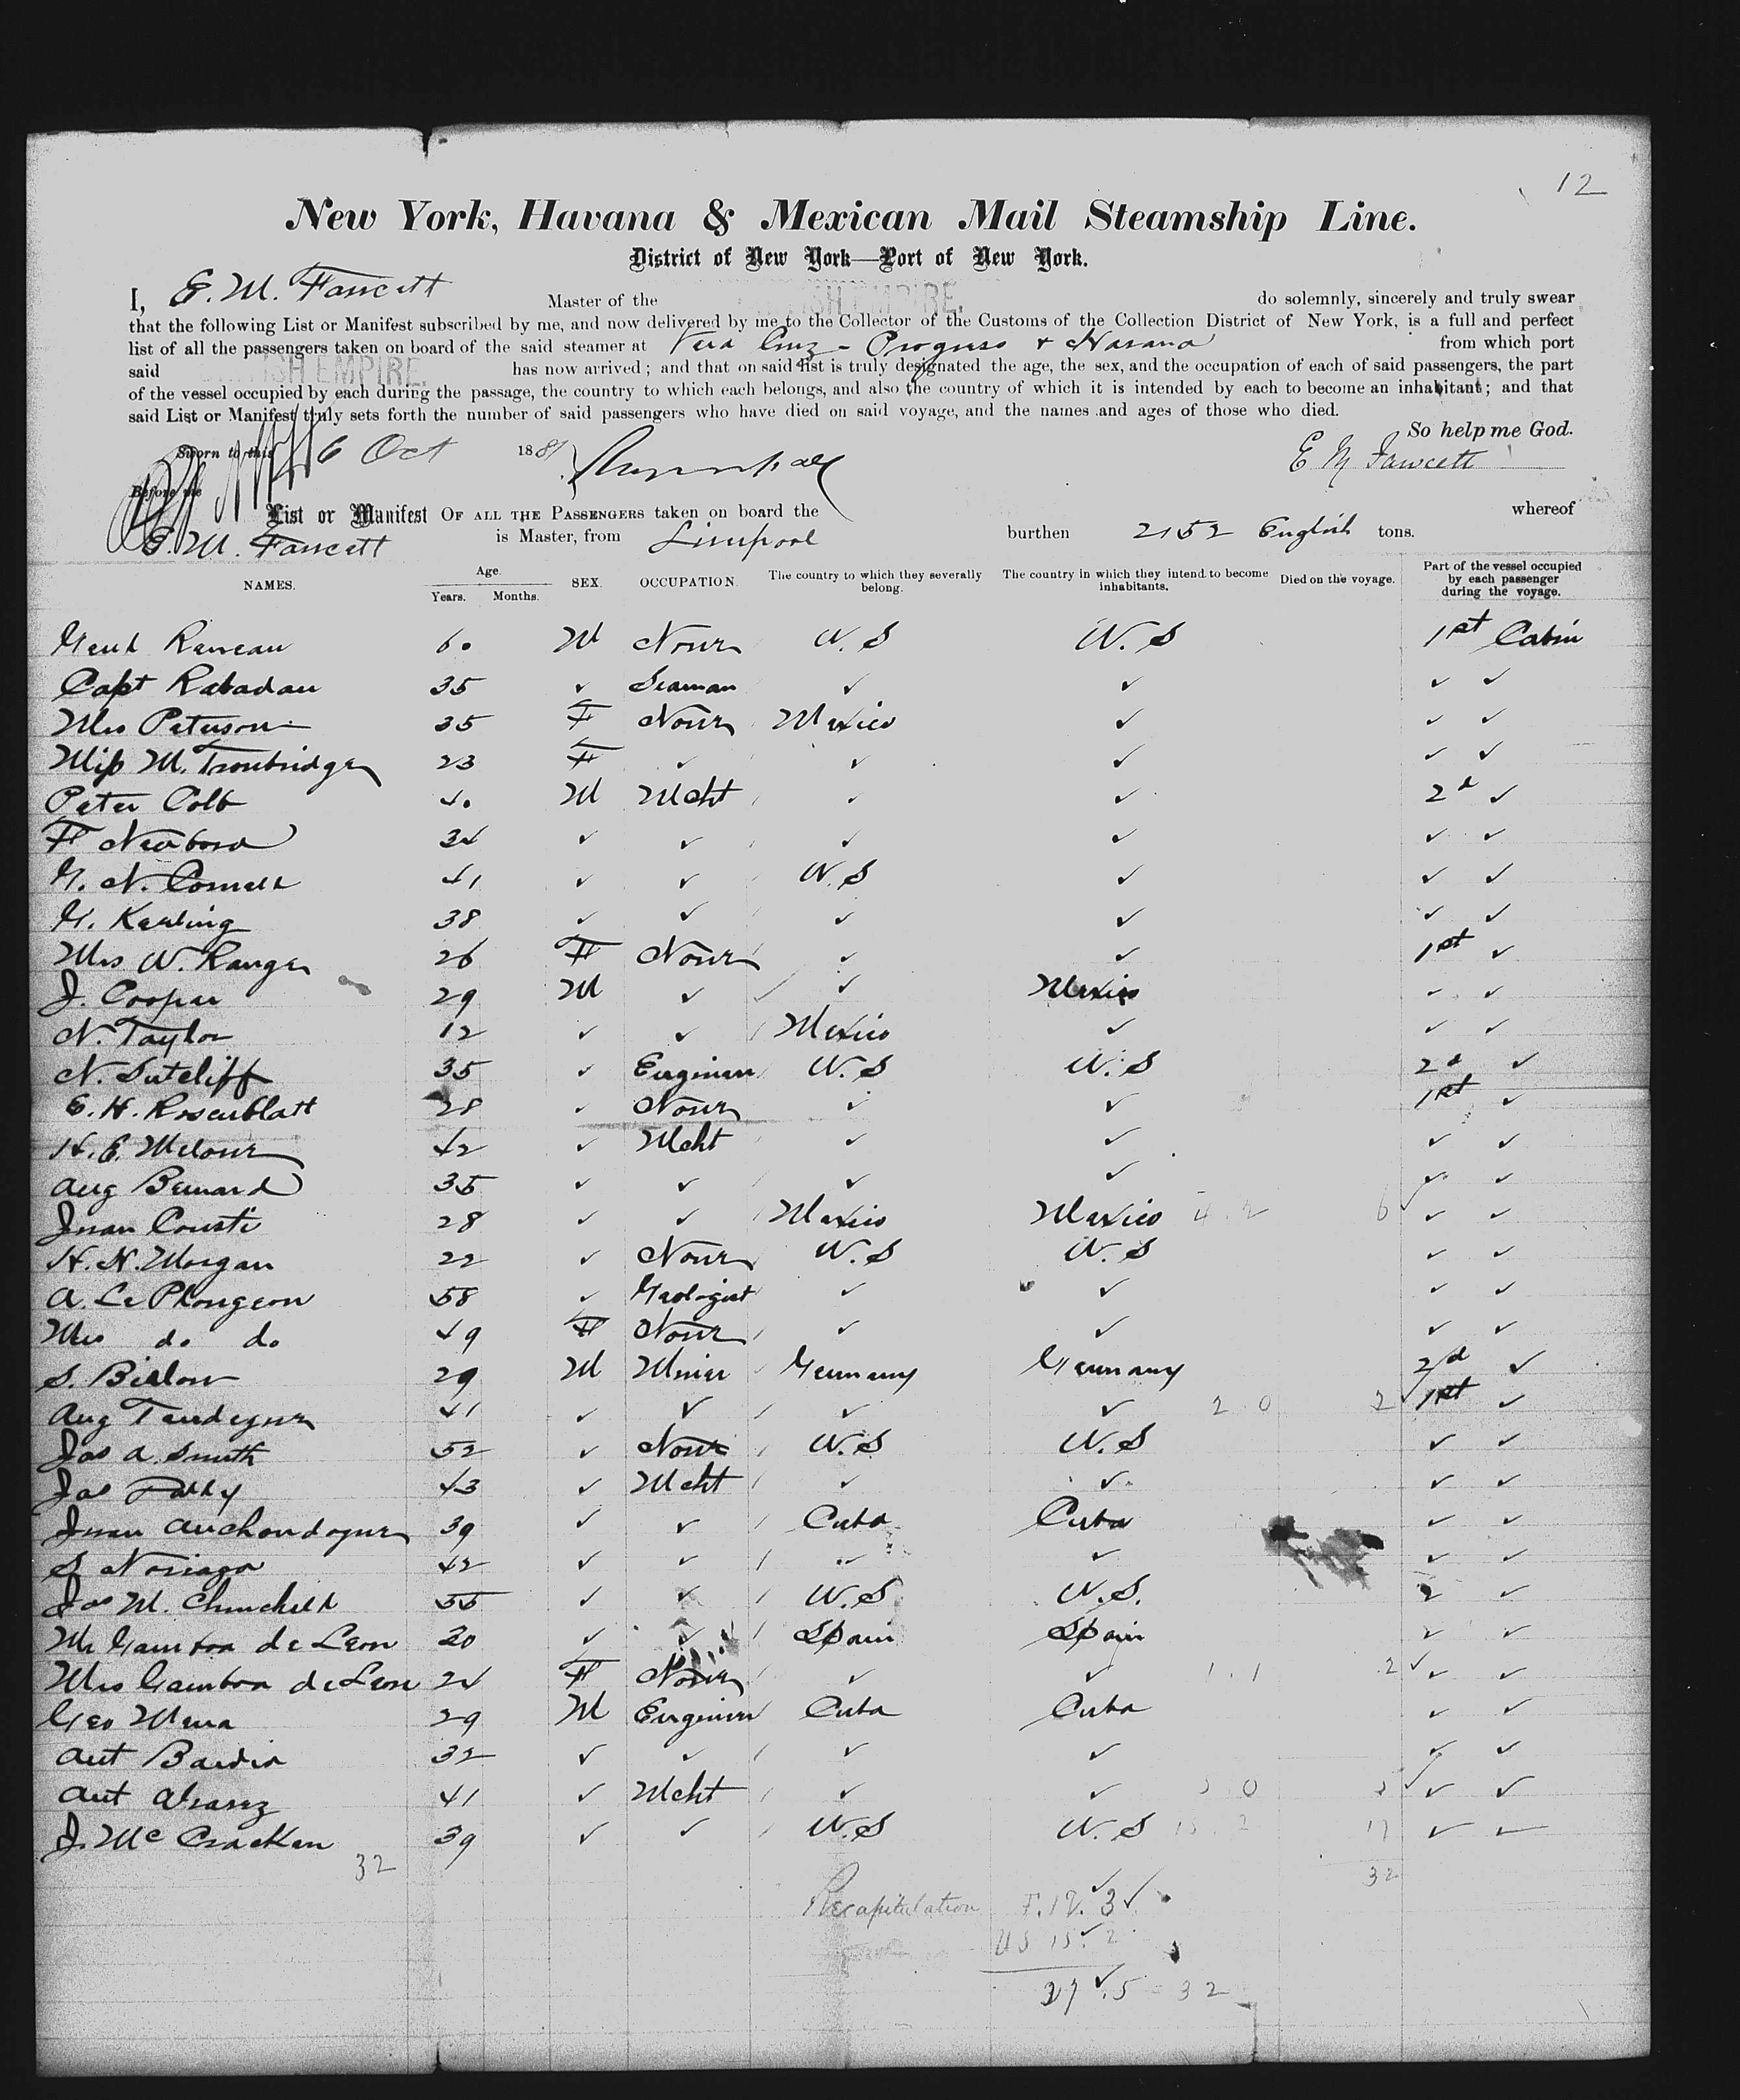 12
New York, Havana & Mexican Mail Steamship Line.
District of New York—Port of New York.
I, E. M. Fawcett Master of the BRITISH EMPIRE. do solemnly, sincerely and truly swear
that the following List or Manifest subscribed by me, and now delivered by me to the Collector of the Customs of the Collection District of New York, is a full and perfect
list of all the passengers taken on board of the said steamer at Vera Cruz - Progreso & Havana from which port
said BRITISH EMPIRE. has now arrived; and that on said list is truly designated the age, the sex, and the occupation of each of said passengers, the part
of the vessel occupied by each during the passage, the country to which each belongs, and also the country of which it is intended by each to become an inhabitant; and that
said List or Manifest truly sets forth the number of said passengers who have died on said voyage, and the names and ages of those who died.
So help me God.
Sworn to this 6 Oct 1881 E M Fawcett
Before me
List or Manifest OF ALL THE PASSENGERS taken on board the whereof
E. M. Fawcett is Master, from Liverpool burthen 2152 English tons.
NAMES. Age. Years. Months. SEX. OCCUPATION. The country to which they severally belong. The country in which they intend to become inhabitants. Died on the voyage. Part of the vessel occupied by each passenger during the voyage.
60 M None U.S U.S 1st Cabin
Capt Rabadan 35 ✓ Seaman ✓ ✓ ✓ ✓
Mrs Peterson 35 F None Mexico ✓ ✓ ✓
Miss M. Trowbridge 23 F ✓ ✓ ✓ ✓ ✓
Peter Colb 40 M Mcht ✓ ✓ 2d ✓
F 34 ✓ ✓ ✓ ✓ ✓ ✓
G. N. Cornell 41 ✓ ✓ U.S ✓ ✓ ✓
G. Karling 38 ✓ ✓ ✓ ✓ ✓ ✓
Mrs W. Ranger 26 F None ✓ ✓ 1st ✓
J. Cooper 29 M ✓ ✓ Mexico ✓ ✓
N. Taylor 12 ✓ ✓ Mexico ✓ ✓ ✓
N. Sutcliff 35 ✓ Engineer U.S U.S 2d ✓
E. H. Rosenblatt 28 ✓ None ✓ ✓ 1st ✓
H. E. 42 ✓ Mcht ✓ ✓ ✓ ✓
Aug Bernard 35 ✓ ✓ ✓ ✓ ✓ ✓
Juan Cousti 28 ✓ ✓ Mexico Mexico 4 . 2 6 ✓ ✓
H. H. Morgan 22 ✓ None U.S U.S ✓ ✓
A. Le Plongeon 58 ✓ Geologist ✓ ✓ ✓ ✓
Mrs do do 49 F None ✓ ✓ ✓ ✓
S. Bielow 29 M Miner Germany Germany 2d ✓
Aug 41 ✓ ✓ ✓ ✓ 2 0 2 1st ✓
Jas A. Smith 52 ✓ None U.S U.S ✓ ✓
Jas 43 ✓ Mcht ✓ ✓ ✓ ✓
Juan 39 ✓ ✓ Cuba Cuba ✓ ✓
S Noriega 42 ✓ ✓ ✓ ✓ ✓ ✓
Jas M. Churchill 55 ✓ ✓ U.S U.S. 2 ✓
Mr Gamboa de Leon 30 ✓ ✓ Spain Spain ✓ ✓
Mrs Gamboa de Leon 24 F None ✓ ✓ 1 . 1 2 ✓ ✓ ✓
Geo Mena 29 M Engineer Cuba Cuba ✓ ✓
Ant 32 ✓ ✓ ✓ ✓ ✓ ✓
Ant Alvarez 41 ✓ Mcht ✓ ✓ 5 0 ✓ ✓ ✓
J. Mc Cracken 39 ✓ ✓ U.S U.S 15 . 2 17 ✓ ✓
32 32
Recapitulation F. 12. 3 ✓
US 15. 2
27 . 5 = 32